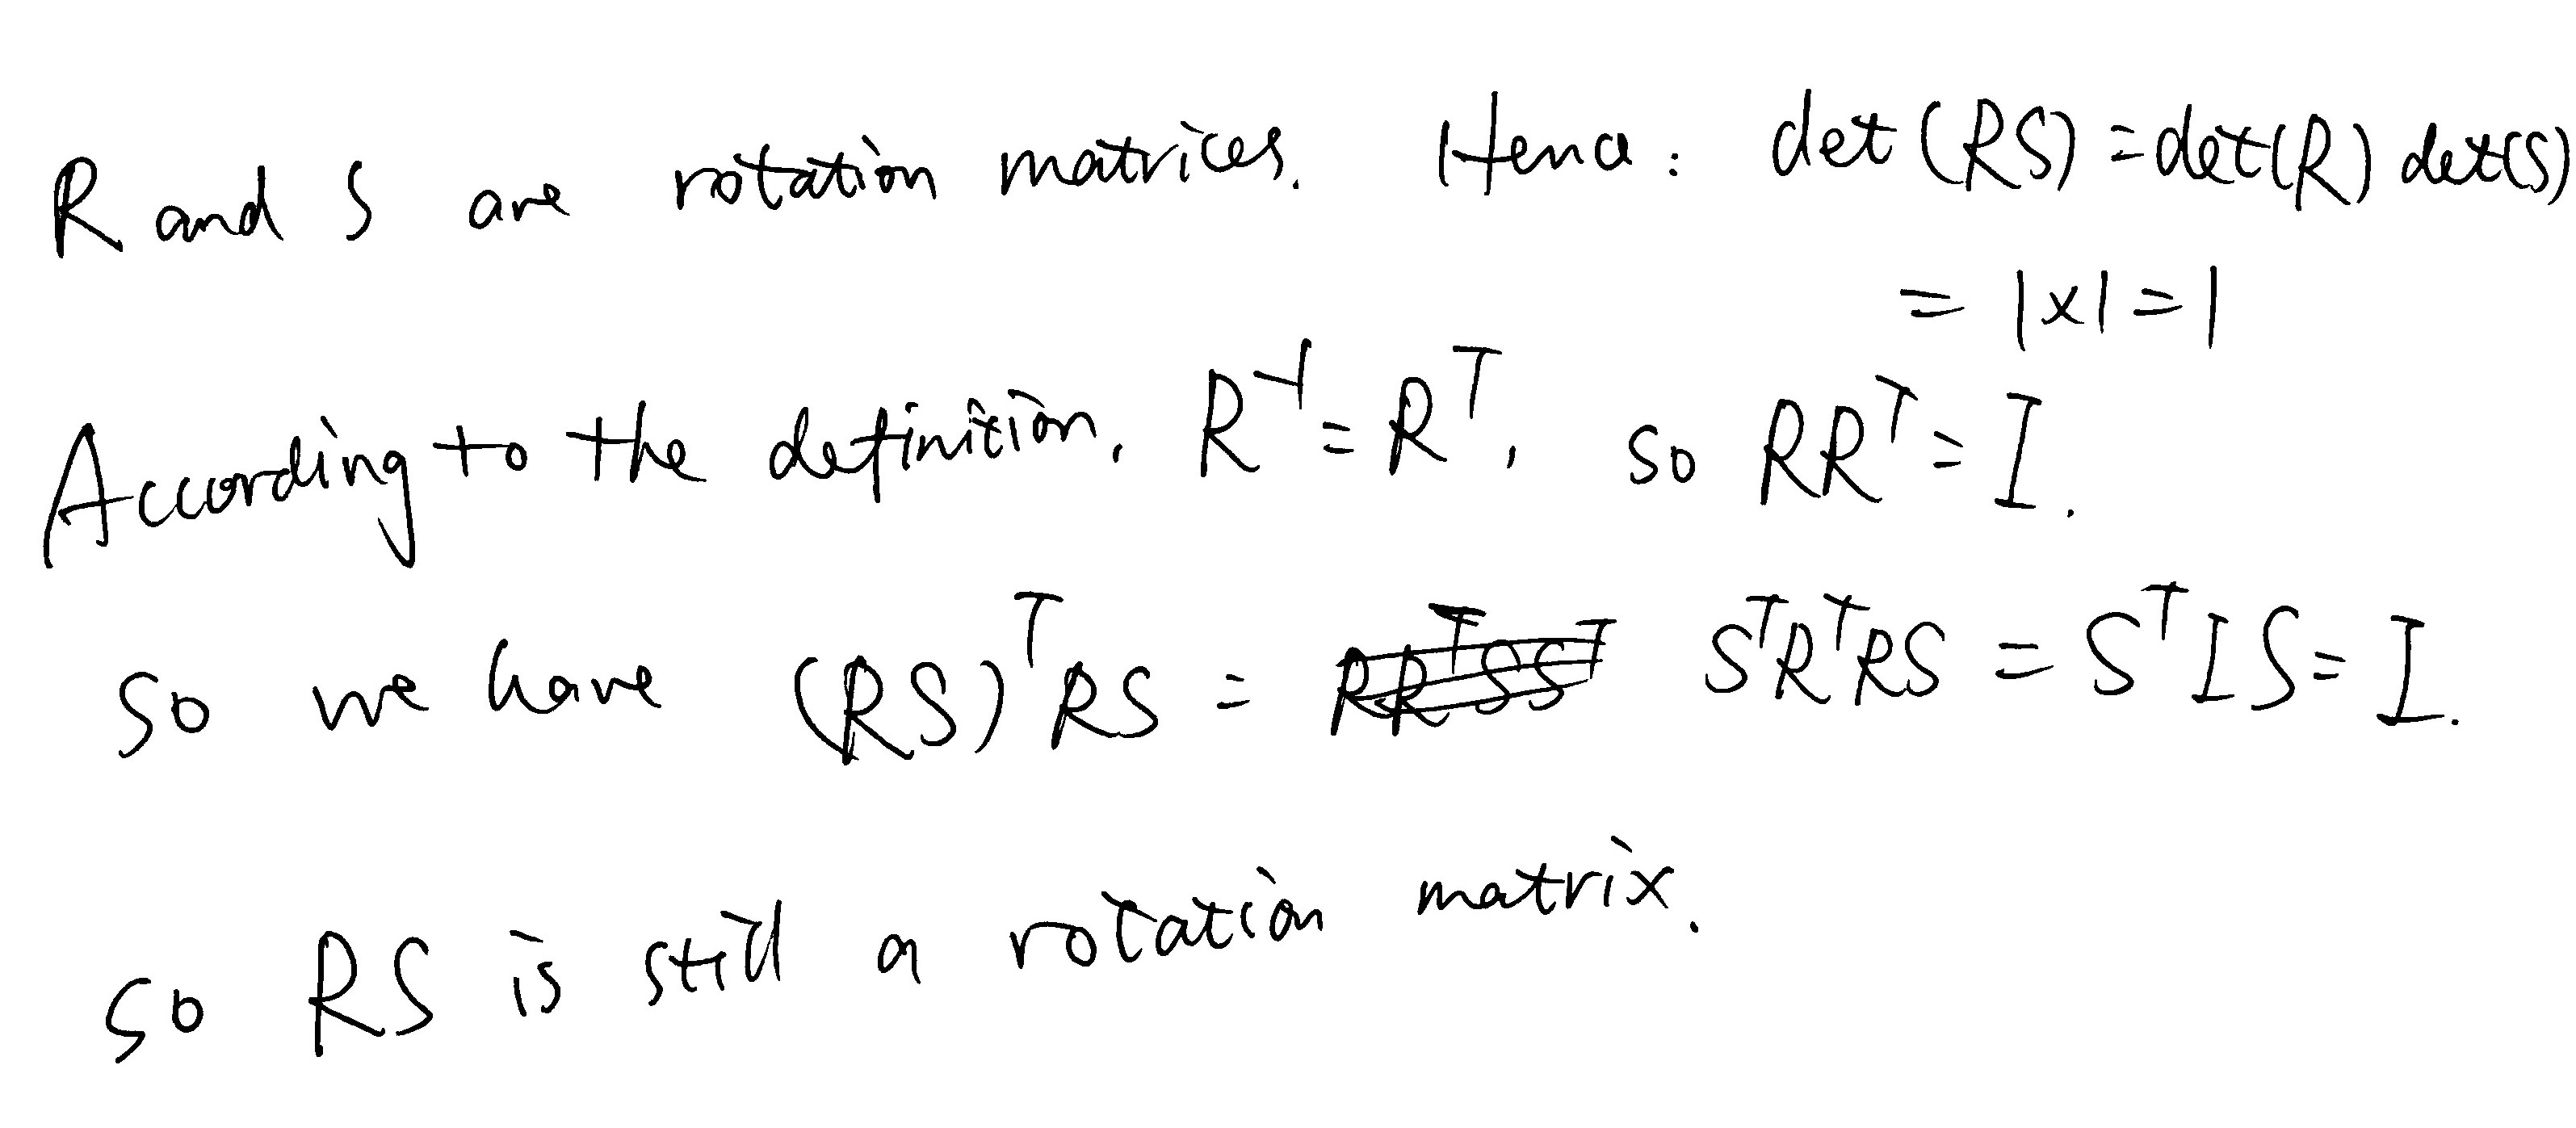 R and S are rotation matrices. Hence: det(RS)=det(R) det(S)
= 1×1=1
According to the definition, R⁻¹=Rᵀ, so RRᵀ=I.
so we have (RS)ᵀRS = RRᵀSSᵀ SᵀRᵀRS = SᵀIS=I.
so RS is still a rotation matrix.